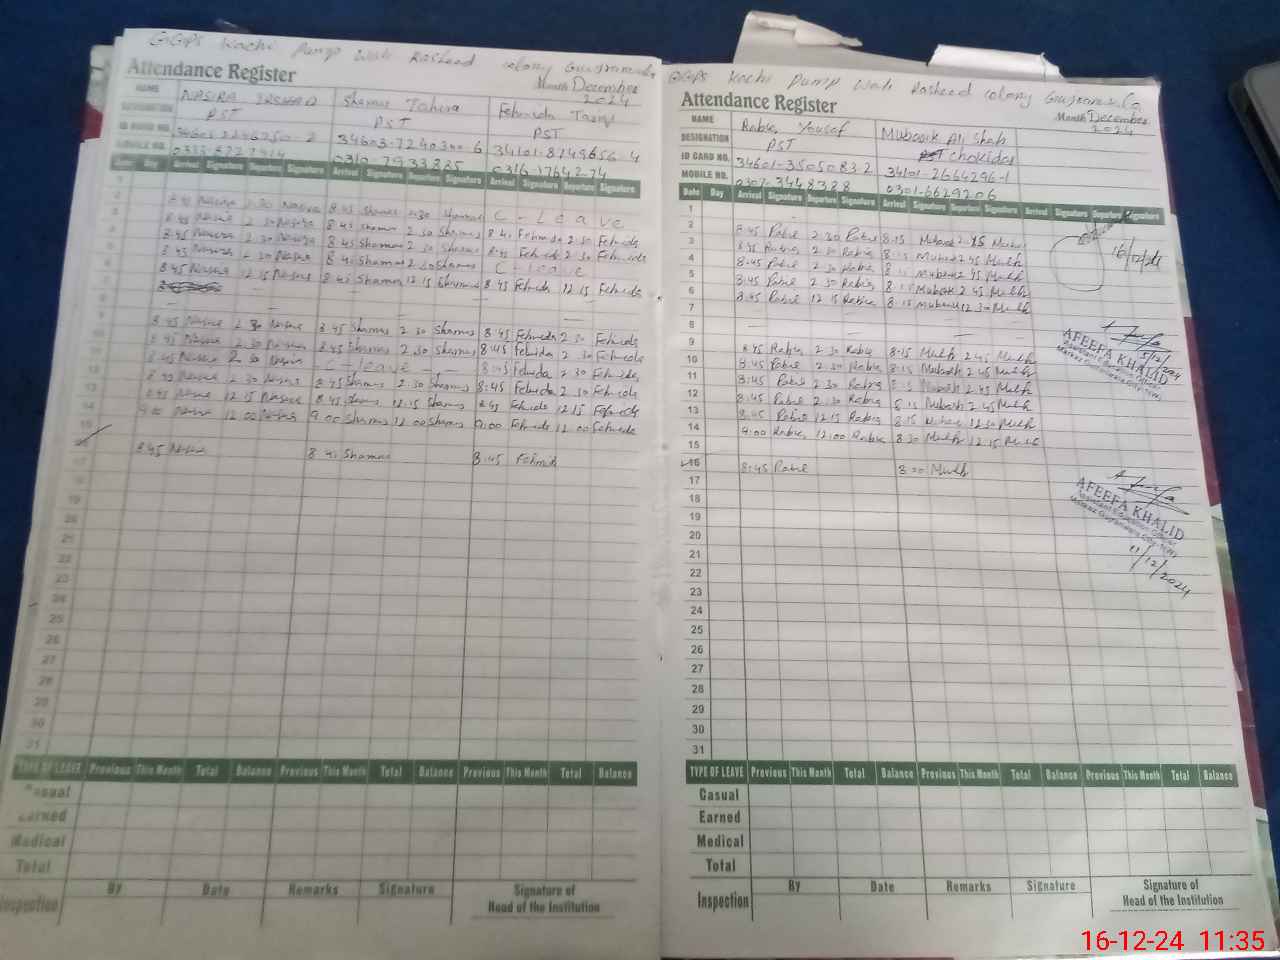 GGPS Kachi Pump Wali Rasheed colony Gujranwala
Attendance Register
Month December 2024
NAME NASIRA IRSHAD Shamas Tahira Fehmida
DESIGNATION PST PST PST
ID CARD NO. 34603-7240300-6 34101-8749656-4
MOBILE NO. 0310-7933885 0316-1764274
Date Day Arrival Signature Departure Signature Arrival Signature Departure Signature Arrival Signature Departure Signature
8.45 Nasira 2.30 Nasira 8.45 Shamas 2.30 Shamas C-Leave
8.45 Nasira 2.30 Nasira 8.45 Shamas 2.30 Shamas 8.45 Fehmida 2.30 Fehmida
8.45 Nasira 2.30 Nasira 8.45 Shamas 2.30 Shamas 8.45 Fehmida 2.30 Fehmida
8.45 Nasira 2.30 Nasira 8.45 Shamas 2.30 Shamas C-leave
8.45 Nasira 12.15 Nasira 8.45 Shamas 12.15 Shamas 8.45 Fehmida 12.15 Fehmida
8.45 Nasira 2.30 Nasira 8.45 Shamas 2.30 Shamas 8.45 Fehmida 2.30 Fehmida
8.45 Nasira 2.30 Nasira 8.45 Shamas 2.30 Shamas 8.45 Fehmida 2.30 Fehmida
8.45 Nasira 2.30 Nasira C-leave 8.45 Fehmida 2.30 Fehmida
8.45 Nasira 2.30 Nasira 8.45 Shamas 2.30 Shamas 8.45 Fehmida 2.30 Fehmida
8.45 Nasira 12.15 Nasira 8.45 Shamas 12.15 Shamas 8.45 Fehmida 12.15 Fehmida
9.00 Nasira 12.00 Nasira 9.00 Shamas 12.00 Shamas 9.00 Fehmida 12.00 Fehmida
8.45 Nasira 8.45 Shamas 8.45 Fehmida
17
18
19
20
21
22
23
24
25
26
27
28
29
30
31
TYPE OF LEAVE Previous This Month Total Balance Previous This Month Total Balance Previous This Month Total Balance
Casual
Earned
Medical
Total
Inspection By Date Remarks Signature Signature of Head of the Institution
GGPS Kachi Pump Wali Rasheed colony Gujranwala
Attendance Register
Month December 2024
NAME Rabia Yousaf Mubarik Ali Shah
DESIGNATION PST Chokidar
ID CARD NO. 34601-3505083 2 34101-2664296-1
MOBILE NO. 0307-3448388 0301-6629206
Date Day Arrival Signature Departure Signature Arrival Signature Departure Signature Arrival Signature Departure Signature
1
2 8.45 Rabia 2.30 Rabia 8.15 Mubarik 2.45
16/12/24
3 8.45 Rabia 2.30 Rabia 8.15 Mubarik 2.45
4 8.45 Rabia 2.30 Rabia 8.15 Mubarik 2.45
5 8.45 Rabia 2.30 Rabia 8.15 Mubarik 2.45
6 8.45 Rabia 12.15 Rabia 8.15 Mubarik 12.30
7
8
9 8.45 Rabia 2.30 Rabia 8.15 2.45
10 8.45 Rabia 2.30 Rabia 8.15 2.45
11 8.45 Rabia 2.30 Rabia 8.15 Mubarik 2.45
12 8.45 Rabia 2.30 Rabia 8.15 Mubarik 2.45
13 8.45 Rabia 12.15 Rabia 8.15 12.30
14 9.00 Rabia 12.00 Rabia 8.30 12.15
15
16 8.45 Rabia 8.00
17
18
19
20
21
22
23
24
25
26
27
28
29
30
31
AFEEFA KHALID
Assistant Education Officer
5/12/2024
AFEEFA KHALID
Assistant Education Officer
11/12/2024
TYPE OF LEAVE Previous This Month Total Balance Previous This Month Total Balance Previous This Month Total Balance
Casual
Earned
Medical
Total
Inspection By Date Remarks Signature Signature of Head of the Institution
16-12-24 11:35